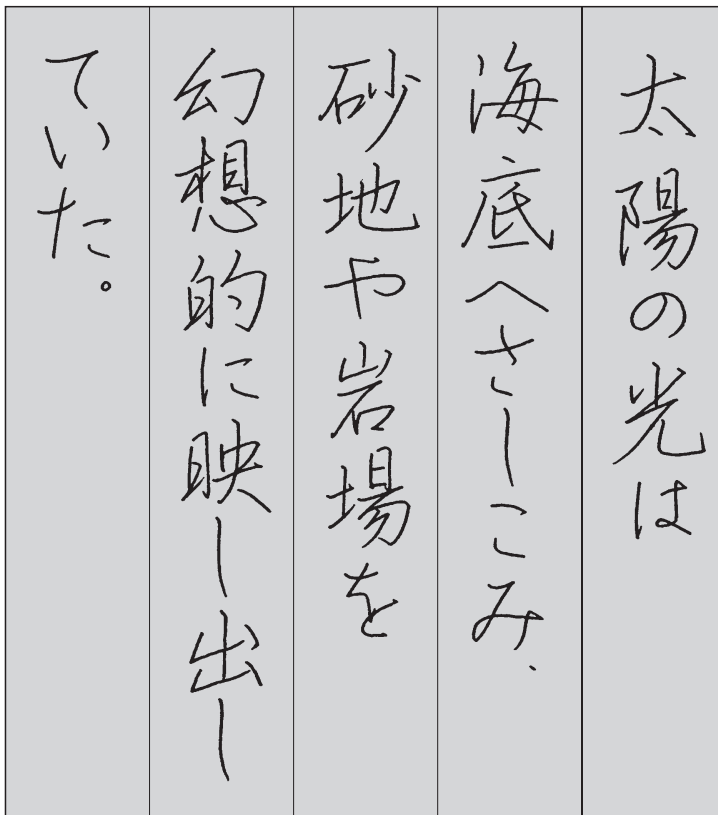 太陽の光は
海底へさしこみ、
砂地や岩場を
幻想的に映し出し
ていた。